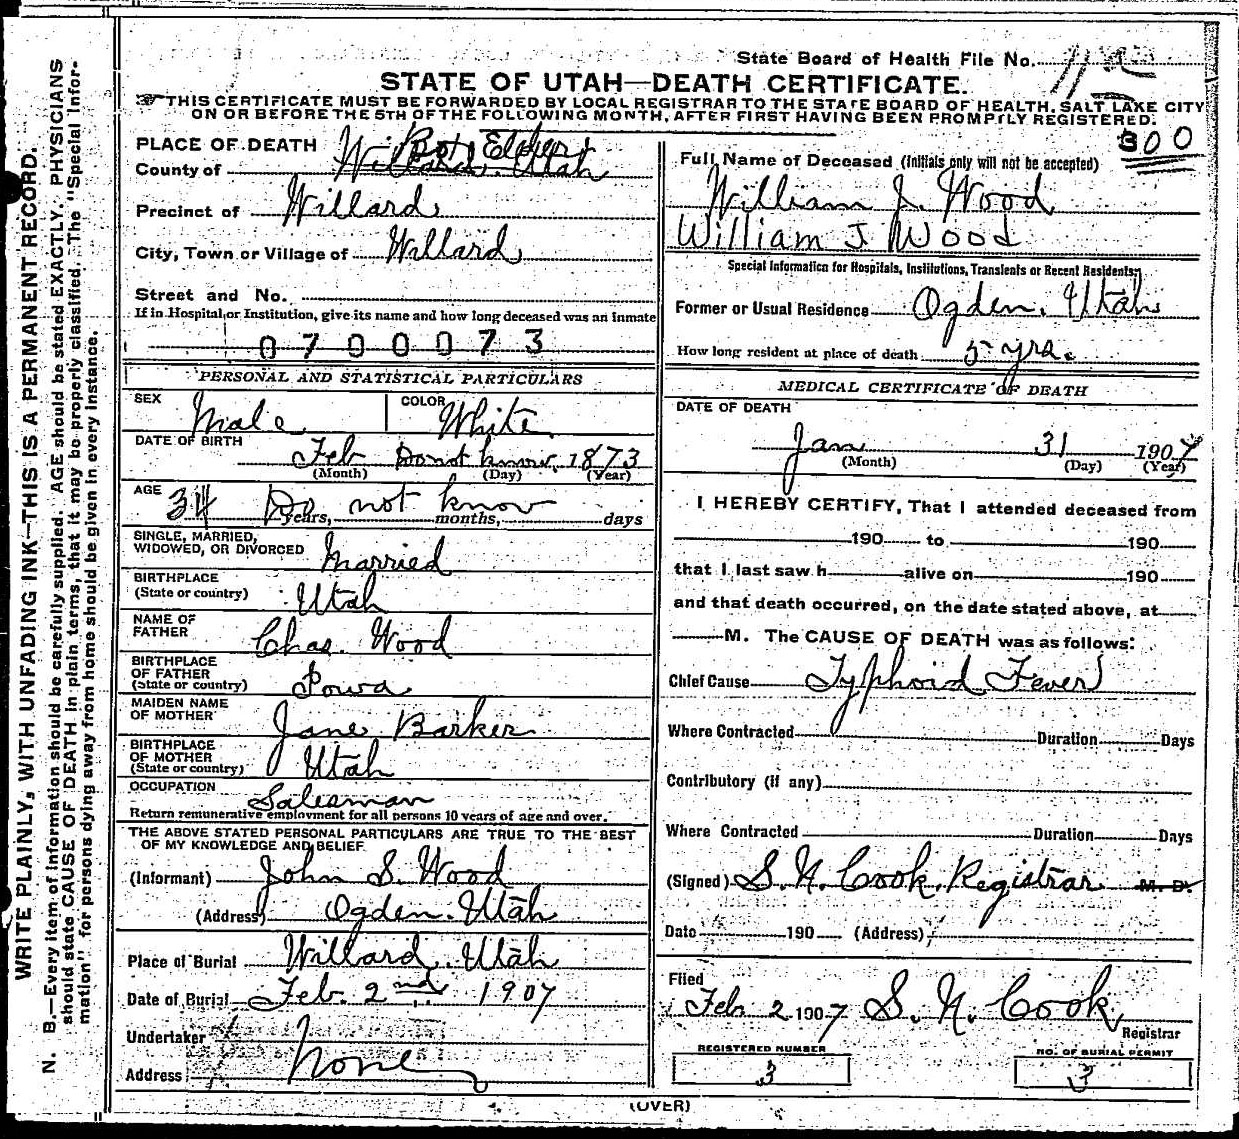 WRITE PLAINLY, WITH UNFADING INK—THIS IS A PERMANENT RECORD.
N. B.—Every item of information should be carefully supplied. AGE should be stated EXACTLY. PHYSICIANS
should state CAUSE OF DEATH in plain terms, that it may be properly classified. The "Special Infor-
mation" for persons dying away from home should be given in every instance.
State Board of Health File No.
STATE OF UTAH—DEATH CERTIFICATE.
THIS CERTIFICATE MUST BE FORWARDED BY LOCAL REGISTRAR TO THE STATE BOARD OF HEALTH, SALT LAKE CITY
ON OR BEFORE THE 5TH OF THE FOLLOWING MONTH, AFTER FIRST HAVING BEEN PROMPTLY REGISTERED.
300
PLACE OF DEATH Box Elder
County of Willard. Utah
Precinct of Willard
City, Town or Village of Willard
Street and No.
If in Hospital or Institution, give its name and how long deceased was an inmate
0700073
PERSONAL AND STATISTICAL PARTICULARS
SEX Male COLOR White
DATE OF BIRTH Feb Do not know, 1873
(Month) (Day) (Year)
AGE 34 years, Do not know months, days
SINGLE, MARRIED,
WIDOWED, OR DIVORCED Married
BIRTHPLACE
(State or country) Utah
NAME OF
FATHER Chas. Wood
BIRTHPLACE
OF FATHER
(State or country) Iowa
MAIDEN NAME
OF MOTHER Jane Barker
BIRTHPLACE
OF MOTHER
(State or country) Utah
OCCUPATION Salesman
Return remunerative employment for all persons 10 years of age and over.
THE ABOVE STATED PERSONAL PARTICULARS ARE TRUE TO THE BEST
OF MY KNOWLEDGE AND BELIEF
(Informant) John S. Wood
(Address) Ogden. Utah
Place of Burial Willard. Utah
Date of Burial Feb. 2nd. 1907
Undertaker
Address None
Full Name of Deceased (Initials only will not be accepted)
William J. Wood
William J Wood
Special Information for Hospitals, Institutions, Transients or Recent Residents:
Former or Usual Residence Ogden. Utah
How long resident at place of death 5 yrs.
MEDICAL CERTIFICATE OF DEATH
DATE OF DEATH
Jan 31 1907
(Month) (Day) (Year)
I HEREBY CERTIFY, That I attended deceased from
190 to 190
that I last saw h alive on 190
and that death occurred, on the date stated above, at
M. The CAUSE OF DEATH was as follows:
Chief Cause Typhoid Fever
Where Contracted Duration Days
Contributory (if any)
Where Contracted Duration Days
(Signed) S. N. Cook, Registrar M. D.
Date 190 (Address)
Filed
Feb 2 1907 S. N. Cook
Registrar
REGISTERED NUMBER
3
NO. OF BURIAL PERMIT
3
(OVER)